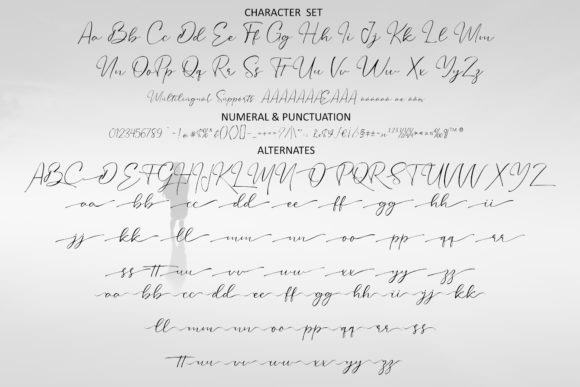 CHARACTER SET
Aa Bb Cc Dd Ee Ff Gg Hh Ii Jj Kk Ll Mm
Nn Oo Pp Qq Rr Ss Tt Uu Vv Ww Xx Yy Zz
Multilingual Supports
NUMERAL & PUNCTUATION
0123456789
ALTERNATES
A B C D E F G H I J K L M N O P Q R S T U V W X Y Z
aa bb cc dd ee ff gg hh ii
jj kk ll mm nn oo pp qq rr
ss tt uu vv ww xx yy zz
aa bb cc dd ee ff gg hh ii jj kk
ll mm nn oo pp qq rr ss
tt uu vv ww xx yy zz